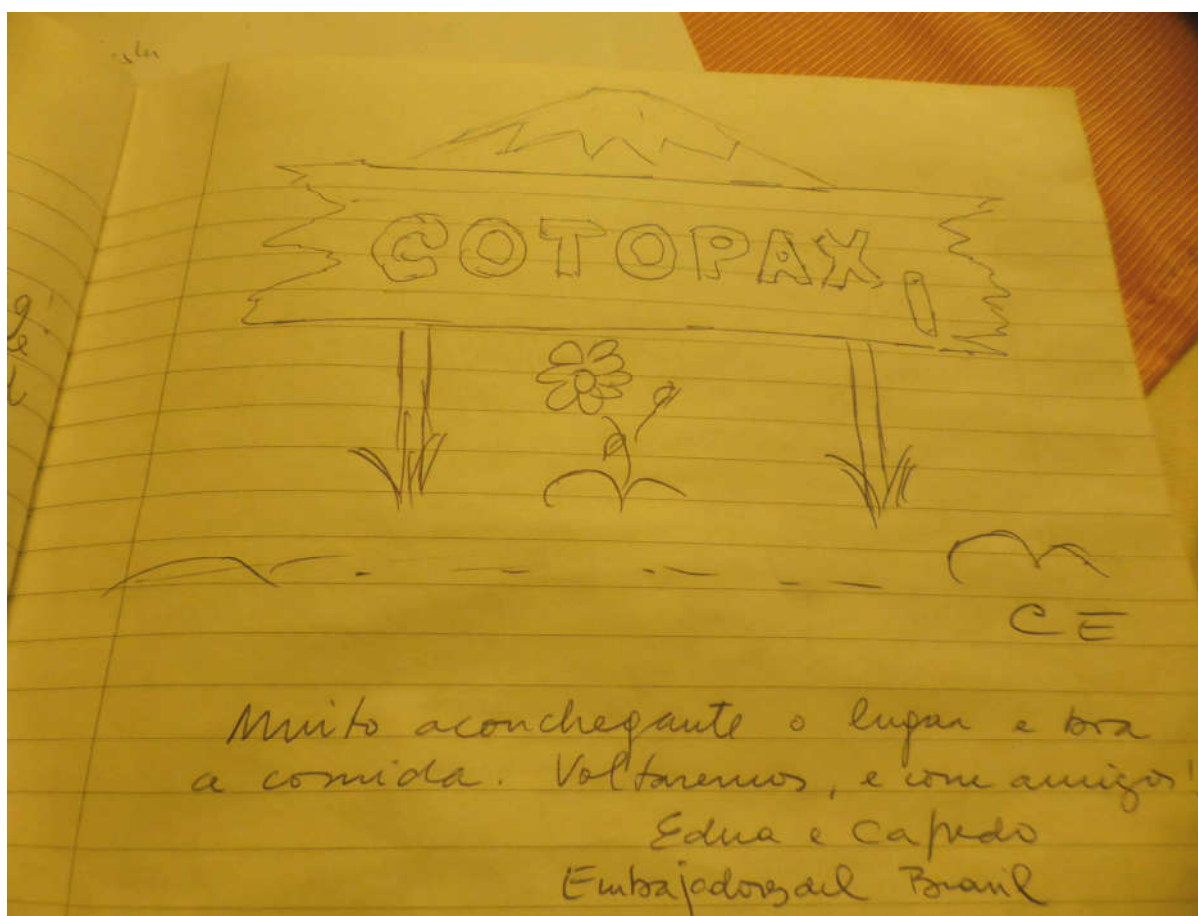 COTOPAXI
CE
Muito aconchegante o lugar e boa
a comida. Voltaremos, e com amigos!
Edna e
Embajadores del Brasil